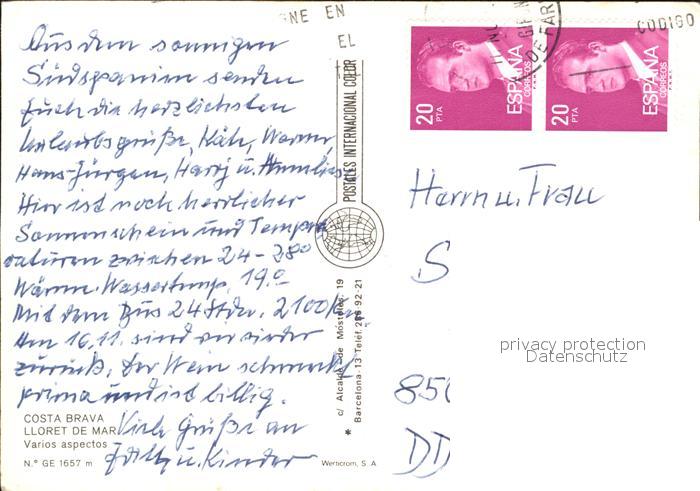 Aus dem sonnigen
Südspanien senden
Euch die herzlichsten
Urlaubsgrüße, Käte, Werner,
Hans-Jürgen, Harry u. Annelies.
Hier ist noch herrlicher
Sonnenschein und Tempe-
raturen zwischen 24-28°
Wärme. Wassertemp. 19.°
Mit dem Bus 24 Stdn. 2100 Km
Am 16.11. sind wir wieder
zurück. Der Wein schmeckt
prima und ist billig.
Viele Grüße an
u. Kinder
COSTA BRAVA
LLORET DE MAR
Varios aspectos
N.° GE 1657 m
Werticrom, S. A.
POSTALES INTERNACIONAL COLOR
c/ Alcalde de Móstoles, 19
Barcelona-13 Teléf. 256 92-21
20 PTA
ESPAÑA
CORREOS
20 PTA
ESPAÑA
CORREOS
EN
EL
CODIGO
Herrn u. Frau
S
850
DD
privacy protection
Datenschutz